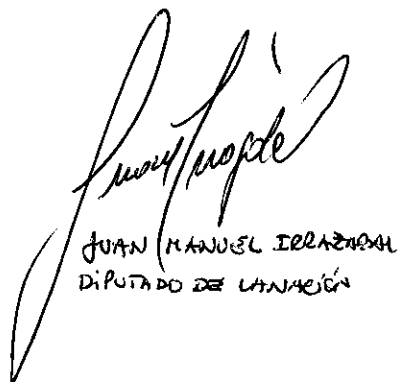 JUAN MANUEL IRRAZABAL
DIPUTADO DE LA NACIÓN